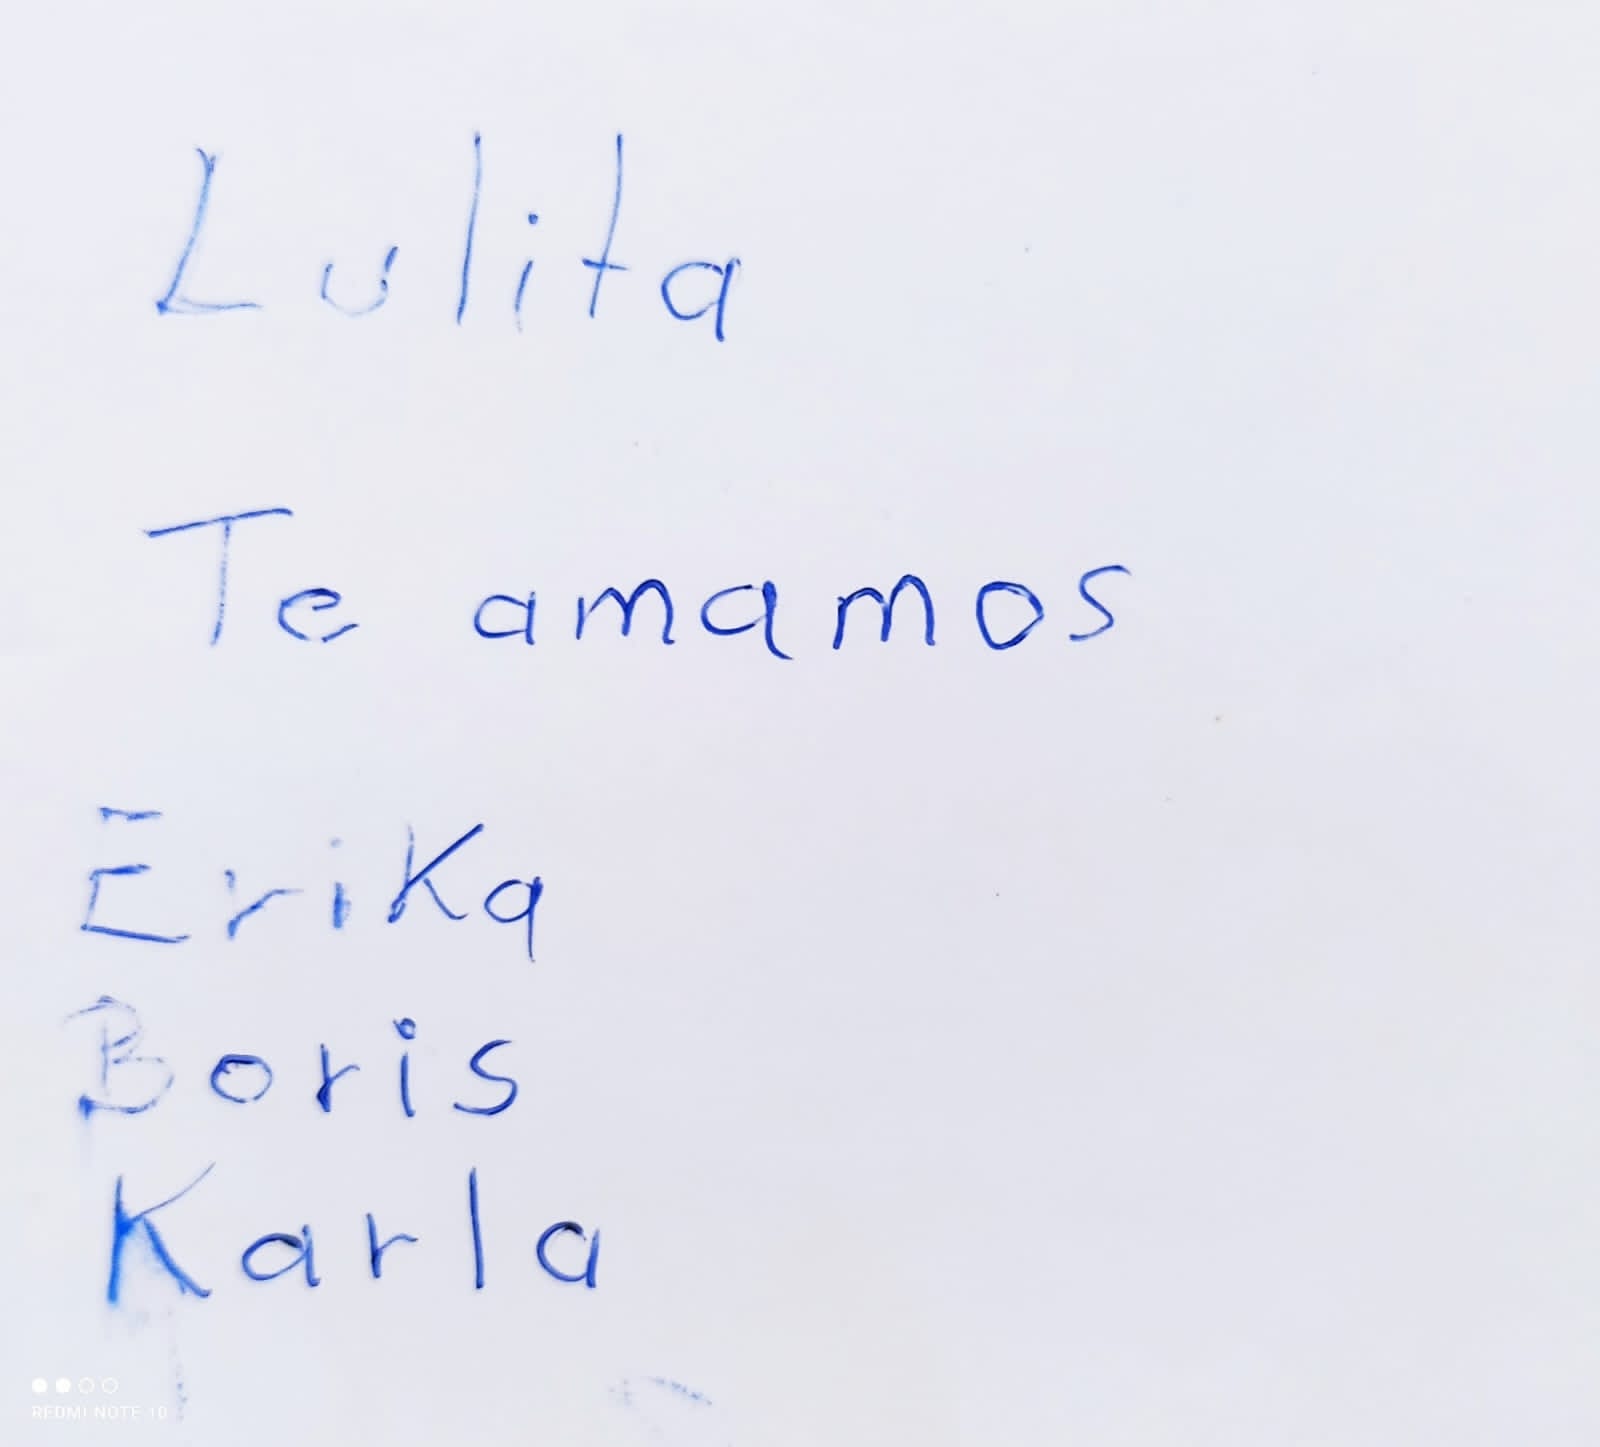 Lulita
Te amamos
Erika
Boris
Karla
REDMI NOTE 10